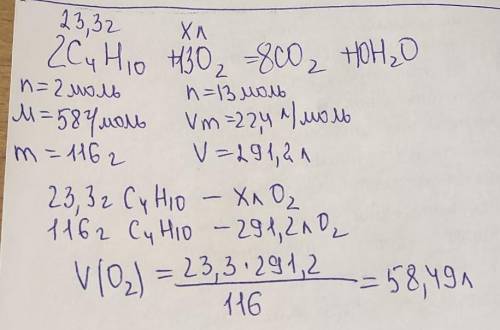 23,3г Хл
2C₄H₁₀ + 13O₂ = 8CO₂ + 10H₂O
n = 2 моль n = 13 моль
M = 58 г/моль Vm = 22,4 л/моль
m = 116 г V = 291,2 л
23,3г C₄H₁₀ – Хл O₂
116г C₄H₁₀ – 291,2л O₂
V(O₂) = 23,3·291,2 / 116 = 58,49л